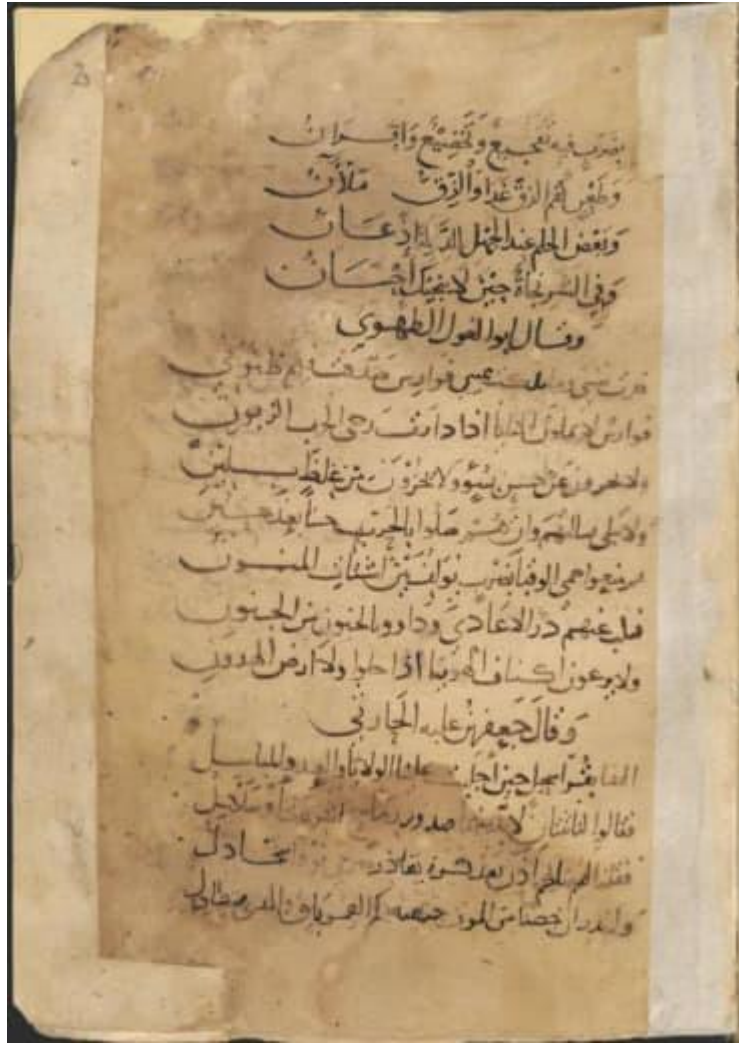 بضرب فيه تفجيع وتخضيع واقران
وطعن كفم الزق غدا والزق ملآن
وبعض الحلم عند الجهل للذلة اذعان
وفي الشر نجاة حين لا ينجيك احسان
وقال ابو الغول الطهوي
فدت نفسي وما ملكت يميني فوارس صدقت فيهم ظنوني
فوارس لا يملون المنايا اذا دارت رحى الحرب الزبون
ولا يجزون من حسن بسيء ولا يجزون من غلظ بلين
ولا تبلى بسالتهم وان هم صلوا بالحرب حينا بعد حين
هم منعوا حمى الوقبا بضرب يؤلف بين اشتات المنون
فنكب عنهم درء الاعادي وداووا بالجنون من الجنون
ولا يرعون اكناف الهوينا اذا حلوا ولا ارض الهدون
وقال جعفر بن علبة الحارثي
الهفا بقرا سحبل حين اجلبت علينا الولايا والعدو المباسل
فقالوا لنا ثنتان لا بد منهما صدور رماح او سلاسل
فقلنا لهم تلكم اذن بعد كرة تغادر تخاذل
ولم ندر ان جضنا من الموت جيضة كم العمر باق والمدى متطاول